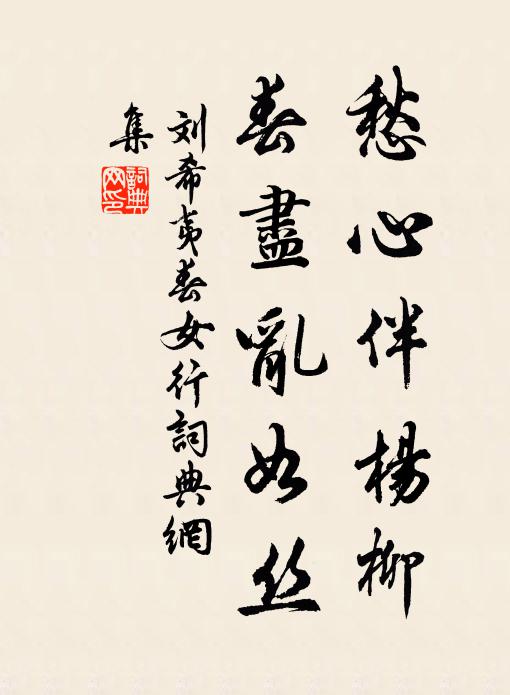 愁心伴楊柳
春盡亂如丝
刘希夷春女行詞典網
集
詞典
网印